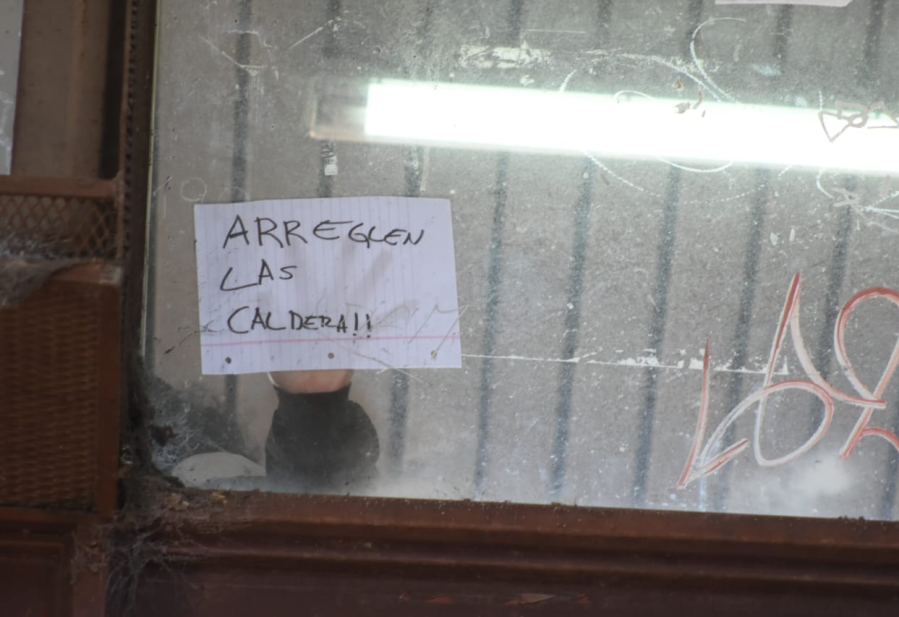 ARREGLEN
LAS
CALDERA!!